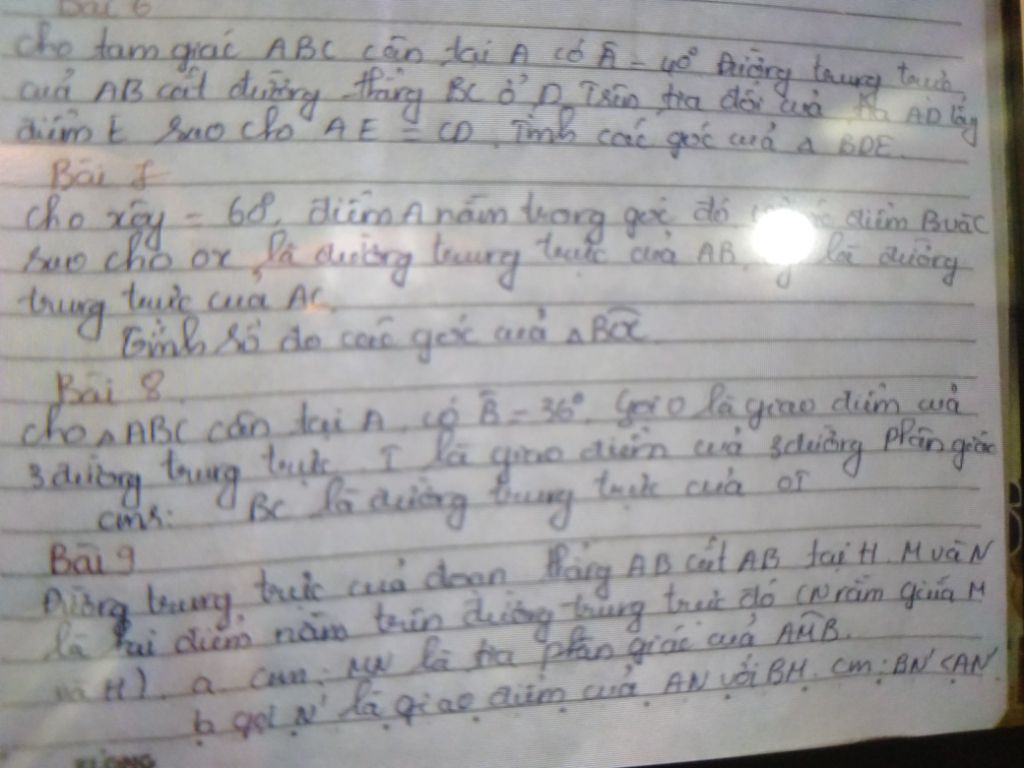 Bài 6
cho tam giác ABC cân tại A có Â = 40° Đường trung trực
của AB cắt đường thẳng BC ở D. Trên tia đối của tia AD lấy
điểm E sao cho AE = CD. Tính các góc của Δ BDE.
Bài 7
cho xôy = 68, điểm A nằm trong góc đó điểm B và C
sao cho ox là đường trung trực của AB, là đường
trung trực của AC.
Tính số đo các góc của Δ
Bài 8
cho Δ ABC cân tại A có B̂ = 36°. Gọi O là giao điểm của
3 đường trung trực. I là giao điểm của 3 đường phân giác
cmr: BC là đường trung trực của OI
Bài 9
Đường trung trực của đoạn thẳng AB cắt AB tại H. M và N
là hai điểm nằm trên đường trung trực đó (N nằm giữa M
và H). a cm: MN là tia phân giác của AMB.
b gọi N' là giao điểm của AN với BM. cm: BN' < AN'